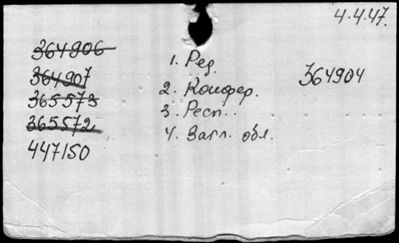 4.4.47.
364906
364907
365573
365572
447150
1. Ред.
2. Конфер.
3. Респ.
4. Загл. обл.
364904